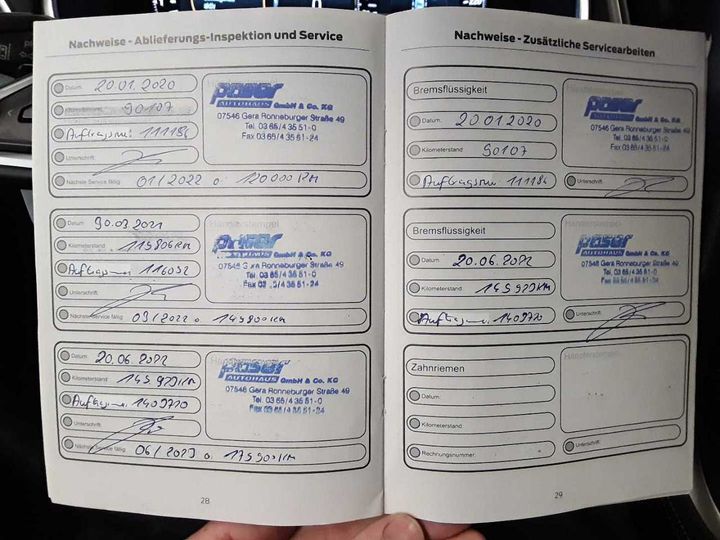 Nachweise - Ablieferungs-Inspektion und Service
Datum: 20.01.2020
90107
Auftragsnr. 111184
Unterschrift:
Nächste Service fällig: 01/2022 o. 120000 KM
poser
AUTOHAUS GmbH & Co. KG
07546 Gera Ronneburger Straße 49
Tel. 03 65/4 35 51-0
Fax 03 65/4 35 51-24
Datum: 30.03.2021
Kilometerstand: 119806 KM
Auftragsnr. 116092
Unterschrift:
Nächster Service fällig: 03/2022 o. 149800 KM
Händlerstempel
AUTOHAUS GmbH & Co. KG
07546 Gera Ronneburger Straße 49
Tel. 03 65/4 35 51-0
Fax 03 65/4 35 51-24
Datum: 20.06.2022
Kilometerstand: 145920 KM
Auftragsnr. 1409720
Unterschrift:
Nächster Service fällig: 06/2023 o. 175900 KM
poser
AUTOHAUS GmbH & Co. KG
07546 Gera Ronneburger Straße 49
Tel. 03 65/4 35 51-0
Fax 03 65/4 35 51-24
28
Nachweise - Zusätzliche Servicearbeiten
Bremsflüssigkeit
Datum: 20.01.2020
Kilometerstand: 90107
Auftragsnr. 111184
poser
AUTOHAUS GmbH & Co. KG
07546 Gera Ronneburger Straße 49
Tel. 03 65/4 35 51-0
Fax 03 65/4 35 51-24
Unterschrift:
Bremsflüssigkeit
Datum: 20.06.2022
Kilometerstand: 145920 KM
Auftragsnr. 1409720
poser
AUTOHAUS GmbH & Co. KG
07546 Gera Ronneburger Straße 49
Tel. 03 65/4 35 51-0
Fax 03 65/4 35 51-24
Unterschrift:
Zahnriemen
Datum:
Kilometerstand:
Rechnungsnummer:
Händlerstempel
Unterschrift:
29